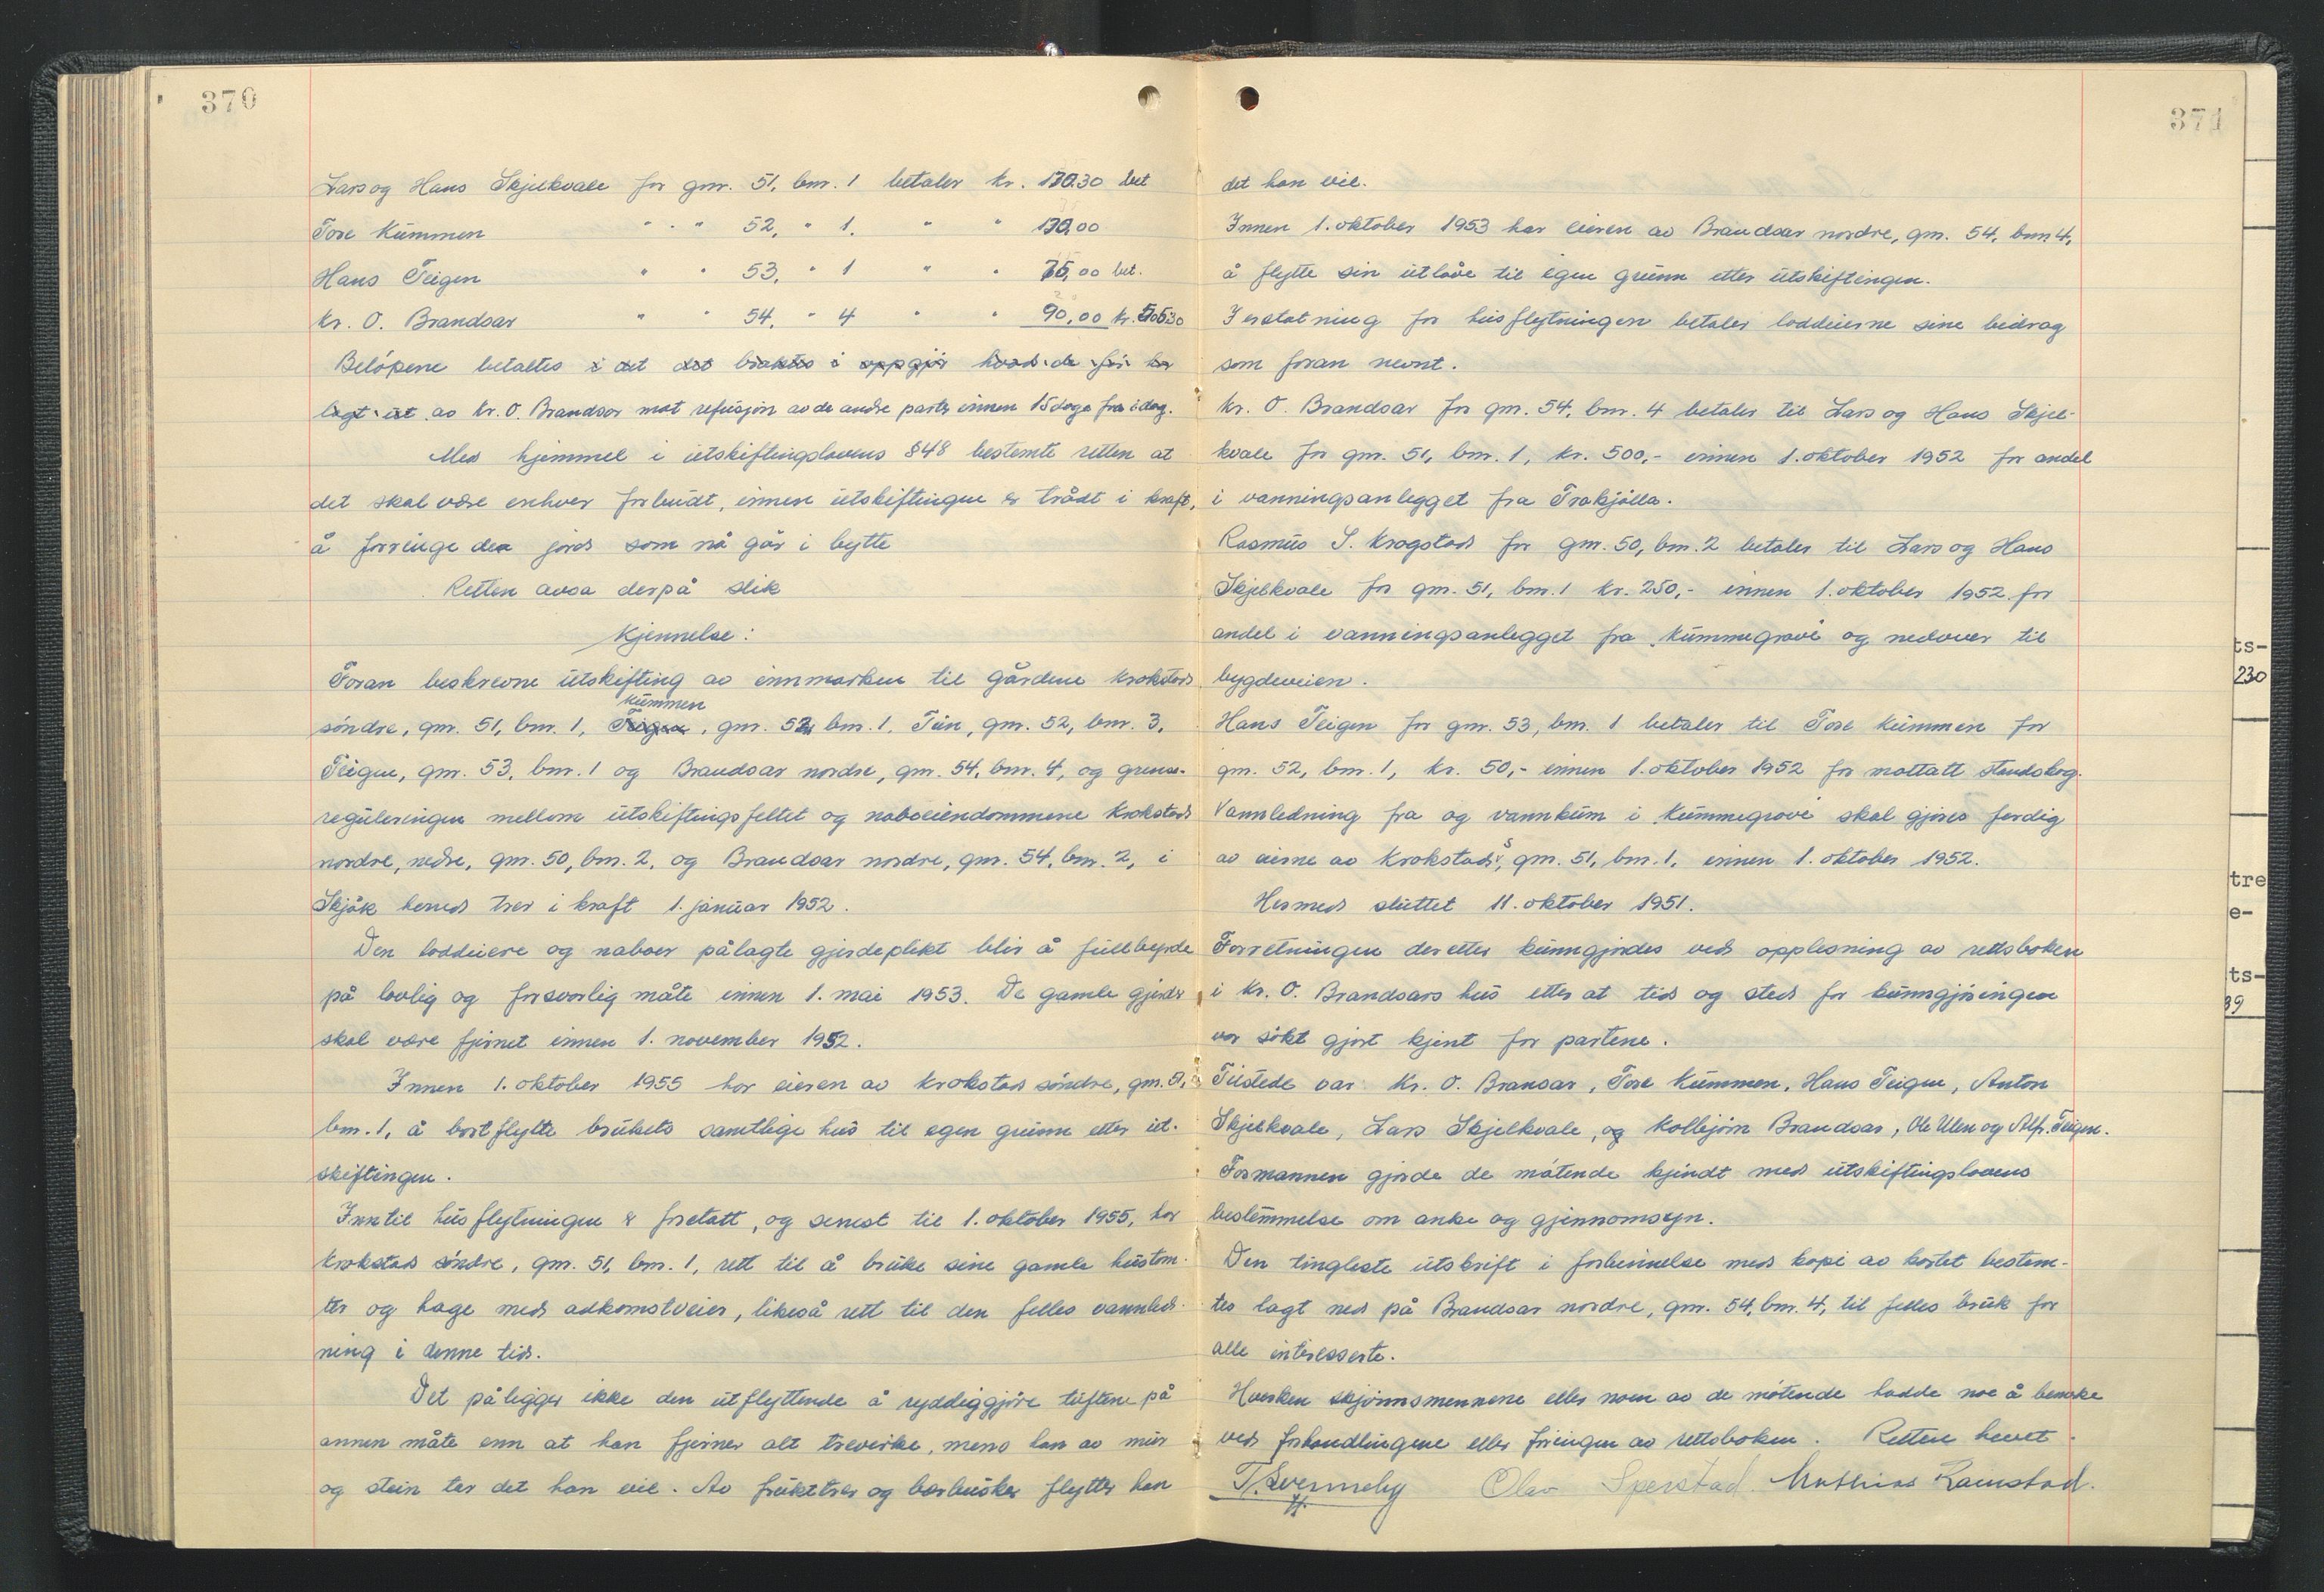 370
Lars og Hans Skjelkvale for gnr. 51, bnr. 1 betaler kr. 170.30 bet
Tore Kummen " " 52, " 1. " " 170,00
Hans Teigen " " 53, " 1 " " 75,00 bet.
Kr. O. Brandsar " " 54, " 4 " " 90,00 kr. 505.30
Beløpene betaltes i det det bruktes i oppgjør hvad de før har
lagt ut av Kr. O. Brandsar mot refusjon av de andre parter innen 15 dage fra idag.
Med hjemmel i utskiftingslovens §48 bestemte retten at
det skal være enhver forbudt, innen utskiftingen er trådt i kraft,
å forringe den jord som nå går i bytte
Retten avsa derpå slik
Kjennelse:
Foran beskrevne utskifting av innmarken til gårdene Krokstad
Kummen
søndre, gnr. 51, bnr. 1, Teigen, gnr. 52, bnr. 1. Tun, gnr. 52, bnr. 3,
Teigen, gnr. 53, bnr. 1 og Brandsar nordre, gnr. 54, bnr. 4, og grense-
reguleringen mellom utskiftingsfeltet og naboeiendommene Krokstad
nordre, nedre, gnr. 50, bnr. 2, og Brandsar nordre, gnr. 54, bnr. 2, i
Skjåk herred trer i kraft 1. januar 1952.
Den loddeiere og naboer pålagte gjerdeplikt blir å fullbyrde
på lovlig og forsvarlig måte innen 1. mai 1953. De gamle gjerder
skal være fjernet innen 1. november 1952.
Innen 1. oktober 1955 har eieren av Krokstad søndre, gnr. 51,
bnr. 1, å bortflytte brukets samtlige hus til egen grunn etter ut-
skiftingen.
Inntil husflytningen er foretatt, og senest til 1. oktober 1955, har
Krokstad søndre, gnr. 51, bnr. 1, rett til å bruke sine gamle hustom-
ter og hage med adkomstveier, likeså rett til den felles vannled-
ning i denne tid.
Det pålegger ikke den utflyttende å ryddiggjøre tuftene på
annen måte enn at han fjerner alt trevirke, mens han av mur
og stein tar det han vil. Av frukttrær og bærbusker flytter han
371
det han vil.
Innen 1. oktober 1953 har eieren av Brandsar nordre, gnr. 54, bnr. 4,
å flytte sin utlåve til egen grunn etter utskiftingen.
I erstatning for husflytningen betaler loddeierne sine bidrag
som foran nevnt.
Kr. O. Brandsar for gnr. 54, bnr. 4 betaler til Lars og Hans Skjel-
kvale for gnr. 51, bnr. 1, kr. 500,- innen 1. oktober 1952 for andel
i vanningsanlegget fra Trakjølla.
Rasmus S. Krogstad for gnr. 50, bnr. 2 betaler til Lars og Hans
Skjelkvale for gnr. 51, bnr. 1 kr. 250,- innen 1. oktober 1952 for
andel i vanningsanlegget fra Kummegrovi og nedover til
bygdeveien.
Hans Teigen for gnr. 53, bnr. 1 betaler til Tore Kummen for
gnr. 52, bnr. 1, kr. 50,- innen 1. oktober 1952 for mottatt standskog.
Vannledning fra og vannkum i Kummegrovi skal gjøres ferdig
av eierne av Krokstad s, gnr. 51, bnr. 1, innen 1. oktober 1952.
Hermed sluttet 11. oktober 1951.
Forretningen deretter kunngjordes ved opplesning av rettsboken
i Kr. O. Brandsars hus etter at tid og sted for kunngjøringen
var søkt gjort kjent for partene.
Tilstede var Kr. O. Bransar, Tore Kummen, Hans Teigen, Anton
Skjelkvale, Lars Skjelkvale, og Kolbjørn Brandsar, Ole Ulen og Alf. Teigen.
Formannen gjorde de møtende kjendt med utskiftingslovens
bestemmelse om anke og gjennomsyn.
Den tingleste utskrift i forbinnelse med kopi av kartet bestem-
tes lagt ned på Brandsar nordre, gnr. 54, bnr. 4, til felles bruk for
alle interesserte.
Hverken skjønnsmennene eller noen av de møtende hadde noe å bemerke
ved forhandlingene eller føringen av rettsboken. Retten hevet.
T. Svenneby Olav Sperstad. Mathias Ramstad.
ts-
230
tre
e-
ts-
39